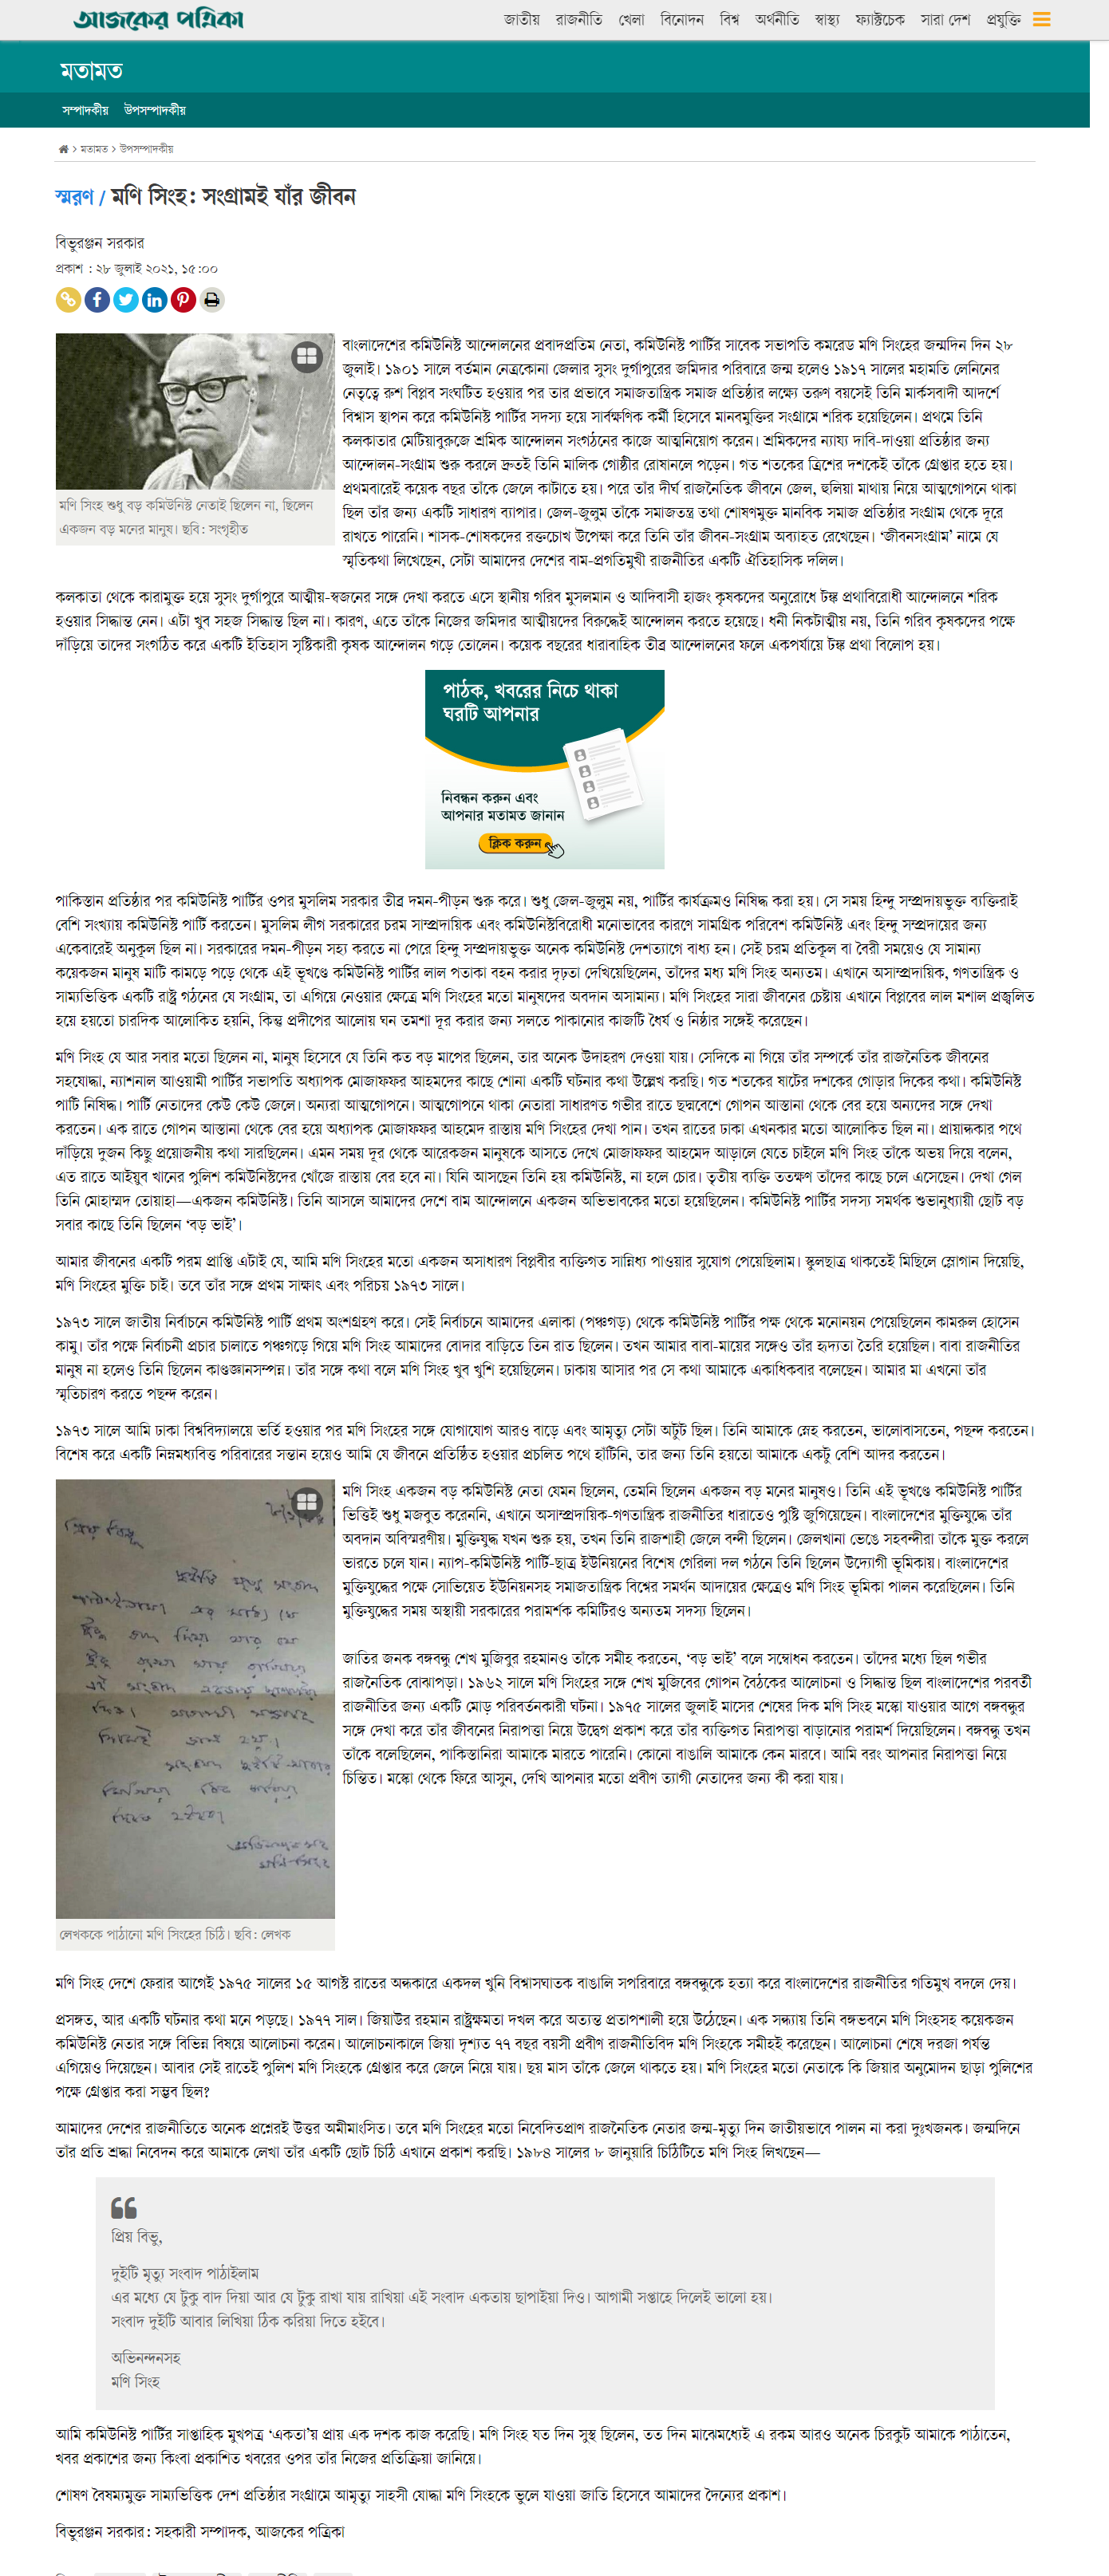 আজকের পত্রিকা
জাতীয় রাজনীতি খেলা বিনোদন বিশ্ব অর্থনীতি স্বাস্থ্য ফ্যাক্টচেক সারা দেশ প্রযুক্তি
মতামত
সম্পাদকীয় উপসম্পাদকীয়
মতামত > উপসম্পাদকীয়
স্মরণ / মণি সিংহ: সংগ্রামই যাঁর জীবন
বিভুরঞ্জন সরকার
প্রকাশ : ২৮ জুলাই ২০২১, ১৫:০০
বাংলাদেশের কমিউনিস্ট আন্দোলনের প্রবাদপ্রতিম নেতা, কমিউনিস্ট পার্টির সাবেক সভাপতি কমরেড মণি সিংহের জন্মদিন দিন ২৮
জুলাই। ১৯০১ সালে বর্তমান নেত্রকোনা জেলার সুসং দুর্গাপুরের জমিদার পরিবারে জন্ম হলেও ১৯১৭ সালের মহামতি লেনিনের
নেতৃত্বে রুশ বিপ্লব সংঘটিত হওয়ার পর তার প্রভাবে সমাজতান্ত্রিক সমাজ প্রতিষ্ঠার লক্ষ্যে তরুণ বয়সেই তিনি মার্কসবাদী আদর্শে
বিশ্বাস স্থাপন করে কমিউনিস্ট পার্টির সদস্য হয়ে সার্বক্ষণিক কর্মী হিসেবে মানবমুক্তির সংগ্রামে শরিক হয়েছিলেন। প্রথমে তিনি
কলকাতার মেটিয়াবুরুজে শ্রমিক আন্দোলন সংগঠনের কাজে আত্মনিয়োগ করেন। শ্রমিকদের ন্যায্য দাবি-দাওয়া প্রতিষ্ঠার জন্য
আন্দোলন-সংগ্রাম শুরু করলে দ্রুতই তিনি মালিক গোষ্ঠীর রোষানলে পড়েন। গত শতকের ত্রিশের দশকেই তাঁকে গ্রেপ্তার হতে হয়।
প্রথমবারেই কয়েক বছর তাঁকে জেলে কাটাতে হয়। পরে তাঁর দীর্ঘ রাজনৈতিক জীবনে জেল, হুলিয়া মাথায় নিয়ে আত্মগোপনে থাকা
ছিল তাঁর জন্য একটি সাধারণ ব্যাপার। জেল-জুলুম তাঁকে সমাজতন্ত্র তথা শোষণমুক্ত মানবিক সমাজ প্রতিষ্ঠার সংগ্রাম থেকে দূরে
রাখতে পারেনি। শাসক-শোষকদের রক্তচোখ উপেক্ষা করে তিনি তাঁর জীবন-সংগ্রাম অব্যাহত রেখেছেন। ‘জীবনসংগ্রাম’ নামে যে
স্মৃতিকথা লিখেছেন, সেটা আমাদের দেশের বাম-প্রগতিমুখী রাজনীতির একটি ঐতিহাসিক দলিল।
মণি সিংহ শুধু বড় কমিউনিস্ট নেতাই ছিলেন না, ছিলেন
একজন বড় মনের মানুষ। ছবি: সংগৃহীত
কলকাতা থেকে কারামুক্ত হয়ে সুসং দুর্গাপুরে আত্মীয়-স্বজনের সঙ্গে দেখা করতে এসে স্থানীয় গরিব মুসলমান ও আদিবাসী হাজং কৃষকদের অনুরোধে টঙ্ক প্রথাবিরোধী আন্দোলনে শরিক
হওয়ার সিদ্ধান্ত নেন। এটা খুব সহজ সিদ্ধান্ত ছিল না। কারণ, এতে তাঁকে নিজের জমিদার আত্মীয়দের বিরুদ্ধেই আন্দোলন করতে হয়েছে। ধনী নিকটাত্মীয় নয়, তিনি গরিব কৃষকদের পক্ষে
দাঁড়িয়ে তাদের সংগঠিত করে একটি ইতিহাস সৃষ্টিকারী কৃষক আন্দোলন গড়ে তোলেন। কয়েক বছরের ধারাবাহিক তীব্র আন্দোলনের ফলে একপর্যায়ে টঙ্ক প্রথা বিলোপ হয়।
পাঠক, খবরের নিচে থাকা
ঘরটি আপনার
নিবন্ধন করুন এবং
আপনার মতামত জানান
ক্লিক করুন
পাকিস্তান প্রতিষ্ঠার পর কমিউনিস্ট পার্টির ওপর মুসলিম সরকার তীব্র দমন-পীড়ন শুরু করে। শুধু জেল-জুলুম নয়, পার্টির কার্যক্রমও নিষিদ্ধ করা হয়। সে সময় হিন্দু সম্প্রদায়ভুক্ত ব্যক্তিরাই
বেশি সংখ্যায় কমিউনিস্ট পার্টি করতেন। মুসলিম লীগ সরকারের চরম সাম্প্রদায়িক এবং কমিউনিস্টবিরোধী মনোভাবের কারণে সামগ্রিক পরিবেশ কমিউনিস্ট এবং হিন্দু সম্প্রদায়ের জন্য
একেবারেই অনুকূল ছিল না। সরকারের দমন-পীড়ন সহ্য করতে না পেরে হিন্দু সম্প্রদায়ভুক্ত অনেক কমিউনিস্ট দেশত্যাগে বাধ্য হন। সেই চরম প্রতিকূল বা বৈরী সময়েও যে সামান্য
কয়েকজন মানুষ মাটি কামড়ে পড়ে থেকে এই ভূখণ্ডে কমিউনিস্ট পার্টির লাল পতাকা বহন করার দৃঢ়তা দেখিয়েছিলেন, তাঁদের মধ্য মণি সিংহ অন্যতম। এখানে অসাম্প্রদায়িক, গণতান্ত্রিক ও
সাম্যভিত্তিক একটি রাষ্ট্র গঠনের যে সংগ্রাম, তা এগিয়ে নেওয়ার ক্ষেত্রে মণি সিংহের মতো মানুষদের অবদান অসামান্য। মণি সিংহের সারা জীবনের চেষ্টায় এখানে বিপ্লবের লাল মশাল প্রজ্বলিত
হয়ে হয়তো চারদিক আলোকিত হয়নি, কিন্তু প্রদীপের আলোয় ঘন তমশা দূর করার জন্য সলতে পাকানোর কাজটি ধৈর্য ও নিষ্ঠার সঙ্গেই করেছেন।
মণি সিংহ যে আর সবার মতো ছিলেন না, মানুষ হিসেবে যে তিনি কত বড় মাপের ছিলেন, তার অনেক উদাহরণ দেওয়া যায়। সেদিকে না গিয়ে তাঁর সম্পর্কে তাঁর রাজনৈতিক জীবনের
সহযোদ্ধা, ন্যাশনাল আওয়ামী পার্টির সভাপতি অধ্যাপক মোজাফফর আহমদের কাছে শোনা একটি ঘটনার কথা উল্লেখ করছি। গত শতকের ষাটের দশকের গোড়ার দিকের কথা। কমিউনিস্ট
পাটি নিষিদ্ধ। পার্টি নেতাদের কেউ কেউ জেলে। অন্যরা আত্মগোপনে। আত্মগোপনে থাকা নেতারা সাধারণত গভীর রাতে ছদ্মবেশে গোপন আস্তানা থেকে বের হয়ে অন্যদের সঙ্গে দেখা
করতেন। এক রাতে গোপন আস্তানা থেকে বের হয়ে অধ্যাপক মোজাফফর আহমেদ রাস্তায় মণি সিংহের দেখা পান। তখন রাতের ঢাকা এখনকার মতো আলোকিত ছিল না। প্রায়ান্ধকার পথে
দাঁড়িয়ে দুজন কিছু প্রয়োজনীয় কথা সারছিলেন। এমন সময় দূর থেকে আরেকজন মানুষকে আসতে দেখে মোজাফফর আহমেদ আড়ালে যেতে চাইলে মণি সিংহ তাঁকে অভয় দিয়ে বলেন,
এত রাতে আইয়ুব খানের পুলিশ কমিউনিস্টদের খোঁজে রাস্তায় বের হবে না। যিনি আসছেন তিনি হয় কমিউনিস্ট, না হলে চোর। তৃতীয় ব্যক্তি ততক্ষণ তাঁদের কাছে চলে এসেছেন। দেখা গেল
তিনি মোহাম্মদ তোয়াহা—একজন কমিউনিস্ট। তিনি আসলে আমাদের দেশে বাম আন্দোলনে একজন অভিভাবকের মতো হয়েছিলেন। কমিউনিস্ট পার্টির সদস্য সমর্থক শুভানুধ্যায়ী ছোট বড়
সবার কাছে তিনি ছিলেন ‘বড় ভাই’।
আমার জীবনের একটি পরম প্রাপ্তি এটাই যে, আমি মণি সিংহের মতো একজন অসাধারণ বিপ্লবীর ব্যক্তিগত সান্নিধ্য পাওয়ার সুযোগ পেয়েছিলাম। স্কুলছাত্র থাকতেই মিছিলে স্লোগান দিয়েছি,
মণি সিংহের মুক্তি চাই। তবে তাঁর সঙ্গে প্রথম সাক্ষাৎ এবং পরিচয় ১৯৭৩ সালে।
১৯৭৩ সালে জাতীয় নির্বাচনে কমিউনিস্ট পার্টি প্রথম অংশগ্রহণ করে। সেই নির্বাচনে আমাদের এলাকা (পঞ্চগড়) থেকে কমিউনিস্ট পার্টির পক্ষ থেকে মনোনয়ন পেয়েছিলেন কামরুল হোসেন
কামু। তাঁর পক্ষে নির্বাচনী প্রচার চালাতে পঞ্চগড়ে গিয়ে মণি সিংহ আমাদের বোদার বাড়িতে তিন রাত ছিলেন। তখন আমার বাবা-মায়ের সঙ্গেও তাঁর হৃদ্যতা তৈরি হয়েছিল। বাবা রাজনীতির
মানুষ না হলেও তিনি ছিলেন কাণ্ডজ্ঞানসম্পন্ন। তাঁর সঙ্গে কথা বলে মণি সিংহ খুব খুশি হয়েছিলেন। ঢাকায় আসার পর সে কথা আমাকে একাধিকবার বলেছেন। আমার মা এখনো তাঁর
স্মৃতিচারণ করতে পছন্দ করেন।
১৯৭৩ সালে আমি ঢাকা বিশ্ববিদ্যালয়ে ভর্তি হওয়ার পর মণি সিংহের সঙ্গে যোগাযোগ আরও বাড়ে এবং আমৃত্যু সেটা অটুট ছিল। তিনি আমাকে স্নেহ করতেন, ভালোবাসতেন, পছন্দ করতেন।
বিশেষ করে একটি নিম্নমধ্যবিত্ত পরিবারের সন্তান হয়েও আমি যে জীবনে প্রতিষ্ঠিত হওয়ার প্রচলিত পথে হাঁটিনি, তার জন্য তিনি হয়তো আমাকে একটু বেশি আদর করতেন।
মণি সিংহ একজন বড় কমিউনিস্ট নেতা যেমন ছিলেন, তেমনি ছিলেন একজন বড় মনের মানুষও। তিনি এই ভূখণ্ডে কমিউনিস্ট পার্টির
ভিত্তিই শুধু মজবুত করেননি, এখানে অসাম্প্রদায়িক-গণতান্ত্রিক রাজনীতির ধারাতেও পুষ্টি জুগিয়েছেন। বাংলাদেশের মুক্তিযুদ্ধে তাঁর
অবদান অবিস্মরণীয়। মুক্তিযুদ্ধ যখন শুরু হয়, তখন তিনি রাজশাহী জেলে বন্দী ছিলেন। জেলখানা ভেঙে সহবন্দীরা তাঁকে মুক্ত করলে
ভারতে চলে যান। ন্যাপ-কমিউনিস্ট পার্টি-ছাত্র ইউনিয়নের বিশেষ গেরিলা দল গঠনে তিনি ছিলেন উদ্যোগী ভূমিকায়। বাংলাদেশের
মুক্তিযুদ্ধের পক্ষে সোভিয়েত ইউনিয়নসহ সমাজতান্ত্রিক বিশ্বের সমর্থন আদায়ের ক্ষেত্রেও মণি সিংহ ভূমিকা পালন করেছিলেন। তিনি
মুক্তিযুদ্ধের সময় অস্থায়ী সরকারের পরামর্শক কমিটিরও অন্যতম সদস্য ছিলেন।
জাতির জনক বঙ্গবন্ধু শেখ মুজিবুর রহমানও তাঁকে সমীহ করতেন, ‘বড় ভাই’ বলে সম্বোধন করতেন। তাঁদের মধ্যে ছিল গভীর
রাজনৈতিক বোঝাপড়া। ১৯৬২ সালে মণি সিংহের সঙ্গে শেখ মুজিবের গোপন বৈঠকের আলোচনা ও সিদ্ধান্ত ছিল বাংলাদেশের পরবর্তী
রাজনীতির জন্য একটি মোড় পরিবর্তনকারী ঘটনা। ১৯৭৫ সালের জুলাই মাসের শেষের দিক মণি সিংহ মস্কো যাওয়ার আগে বঙ্গবন্ধুর
সঙ্গে দেখা করে তাঁর জীবনের নিরাপত্তা নিয়ে উদ্বেগ প্রকাশ করে তাঁর ব্যক্তিগত নিরাপত্তা বাড়ানোর পরামর্শ দিয়েছিলেন। বঙ্গবন্ধু তখন
তাঁকে বলেছিলেন, পাকিস্তানিরা আমাকে মারতে পারেনি। কোনো বাঙালি আমাকে কেন মারবে। আমি বরং আপনার নিরাপত্তা নিয়ে
চিন্তিত। মস্কো থেকে ফিরে আসুন, দেখি আপনার মতো প্রবীণ ত্যাগী নেতাদের জন্য কী করা যায়।
লেখককে পাঠানো মণি সিংহের চিঠি। ছবি: লেখক
মণি সিংহ দেশে ফেরার আগেই ১৯৭৫ সালের ১৫ আগস্ট রাতের অন্ধকারে একদল খুনি বিশ্বাসঘাতক বাঙালি সপরিবারে বঙ্গবন্ধুকে হত্যা করে বাংলাদেশের রাজনীতির গতিমুখ বদলে দেয়।
প্রসঙ্গত, আর একটি ঘটনার কথা মনে পড়ছে। ১৯৭৭ সাল। জিয়াউর রহমান রাষ্ট্রক্ষমতা দখল করে অত্যন্ত প্রতাপশালী হয়ে উঠেছেন। এক সন্ধ্যায় তিনি বঙ্গভবনে মণি সিংহসহ কয়েকজন
কমিউনিস্ট নেতার সঙ্গে বিভিন্ন বিষয়ে আলোচনা করেন। আলোচনাকালে জিয়া দৃশ্যত ৭৭ বছর বয়সী প্রবীণ রাজনীতিবিদ মণি সিংহকে সমীহই করেছেন। আলোচনা শেষে দরজা পর্যন্ত
এগিয়েও দিয়েছেন। আবার সেই রাতেই পুলিশ মণি সিংহকে গ্রেপ্তার করে জেলে নিয়ে যায়। ছয় মাস তাঁকে জেলে থাকতে হয়। মণি সিংহের মতো নেতাকে কি জিয়ার অনুমোদন ছাড়া পুলিশের
পক্ষে গ্রেপ্তার করা সম্ভব ছিল?
আমাদের দেশের রাজনীতিতে অনেক প্রশ্নেরই উত্তর অমীমাংসিত। তবে মণি সিংহের মতো নিবেদিতপ্রাণ রাজনৈতিক নেতার জন্ম-মৃত্যু দিন জাতীয়ভাবে পালন না করা দুঃখজনক। জন্মদিনে
তাঁর প্রতি শ্রদ্ধা নিবেদন করে আমাকে লেখা তাঁর একটি ছোট চিঠি এখানে প্রকাশ করছি। ১৯৮৪ সালের ৮ জানুয়ারি চিঠিটিতে মণি সিংহ লিখছেন—
প্রিয় বিভু,
দুইটি মৃত্যু সংবাদ পাঠাইলাম
এর মধ্যে যে টুকু বাদ দিয়া আর যে টুকু রাখা যায় রাখিয়া এই সংবাদ একতায় ছাপাইয়া দিও। আগামী সপ্তাহে দিলেই ভালো হয়।
সংবাদ দুইটি আবার লিখিয়া ঠিক করিয়া দিতে হইবে।
অভিনন্দনসহ
মণি সিংহ
আমি কমিউনিস্ট পার্টির সাপ্তাহিক মুখপত্র ‘একতা’য় প্রায় এক দশক কাজ করেছি। মণি সিংহ যত দিন সুস্থ ছিলেন, তত দিন মাঝেমধ্যেই এ রকম আরও অনেক চিরকুট আমাকে পাঠাতেন,
খবর প্রকাশের জন্য কিংবা প্রকাশিত খবরের ওপর তাঁর নিজের প্রতিক্রিয়া জানিয়ে।
শোষণ বৈষম্যমুক্ত সাম্যভিত্তিক দেশ প্রতিষ্ঠার সংগ্রামে আমৃত্যু সাহসী যোদ্ধা মণি সিংহকে ভুলে যাওয়া জাতি হিসেবে আমাদের দৈন্যের প্রকাশ।
বিভুরঞ্জন সরকার: সহকারী সম্পাদক, আজকের পত্রিকা